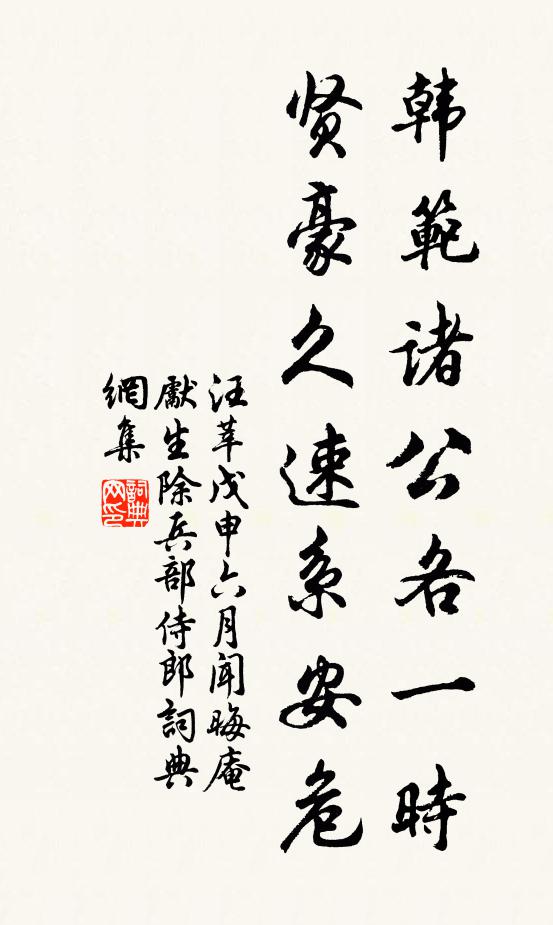 韩範诸公各一時
贤豪久速系安危
汪莘戊申六月闻晦庵
獻生除兵部侍郎詞典
網集
詞典
网印